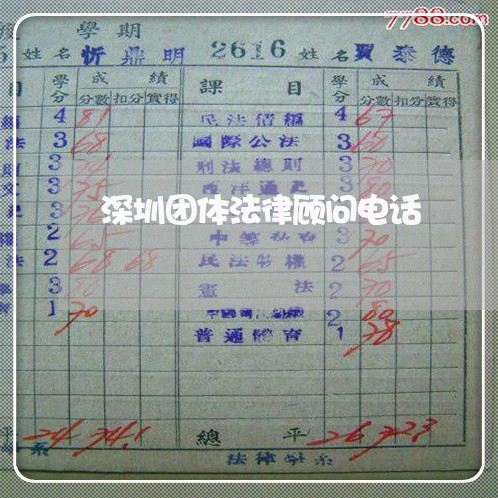 7788.com
學期
姓名 忻鼎明 2616 姓名 賈泰德
目 學分 成績 課目 學分 成績
分數 扣分 實得 分數 扣分 實得
4 81 民法債編 4 67
法 3 68 國際公法 3 60
3 刑法總則 3 70
3 75 西洋通史 3 80
深圳团体法律顾问电话
2 65 3 70
法 2 68 68 民法物權 2 65
3 80 憲法 2 70
1 70 2 80
普通體育 1 78
平 24 74.1 總平 26 72.3
系 法律學系